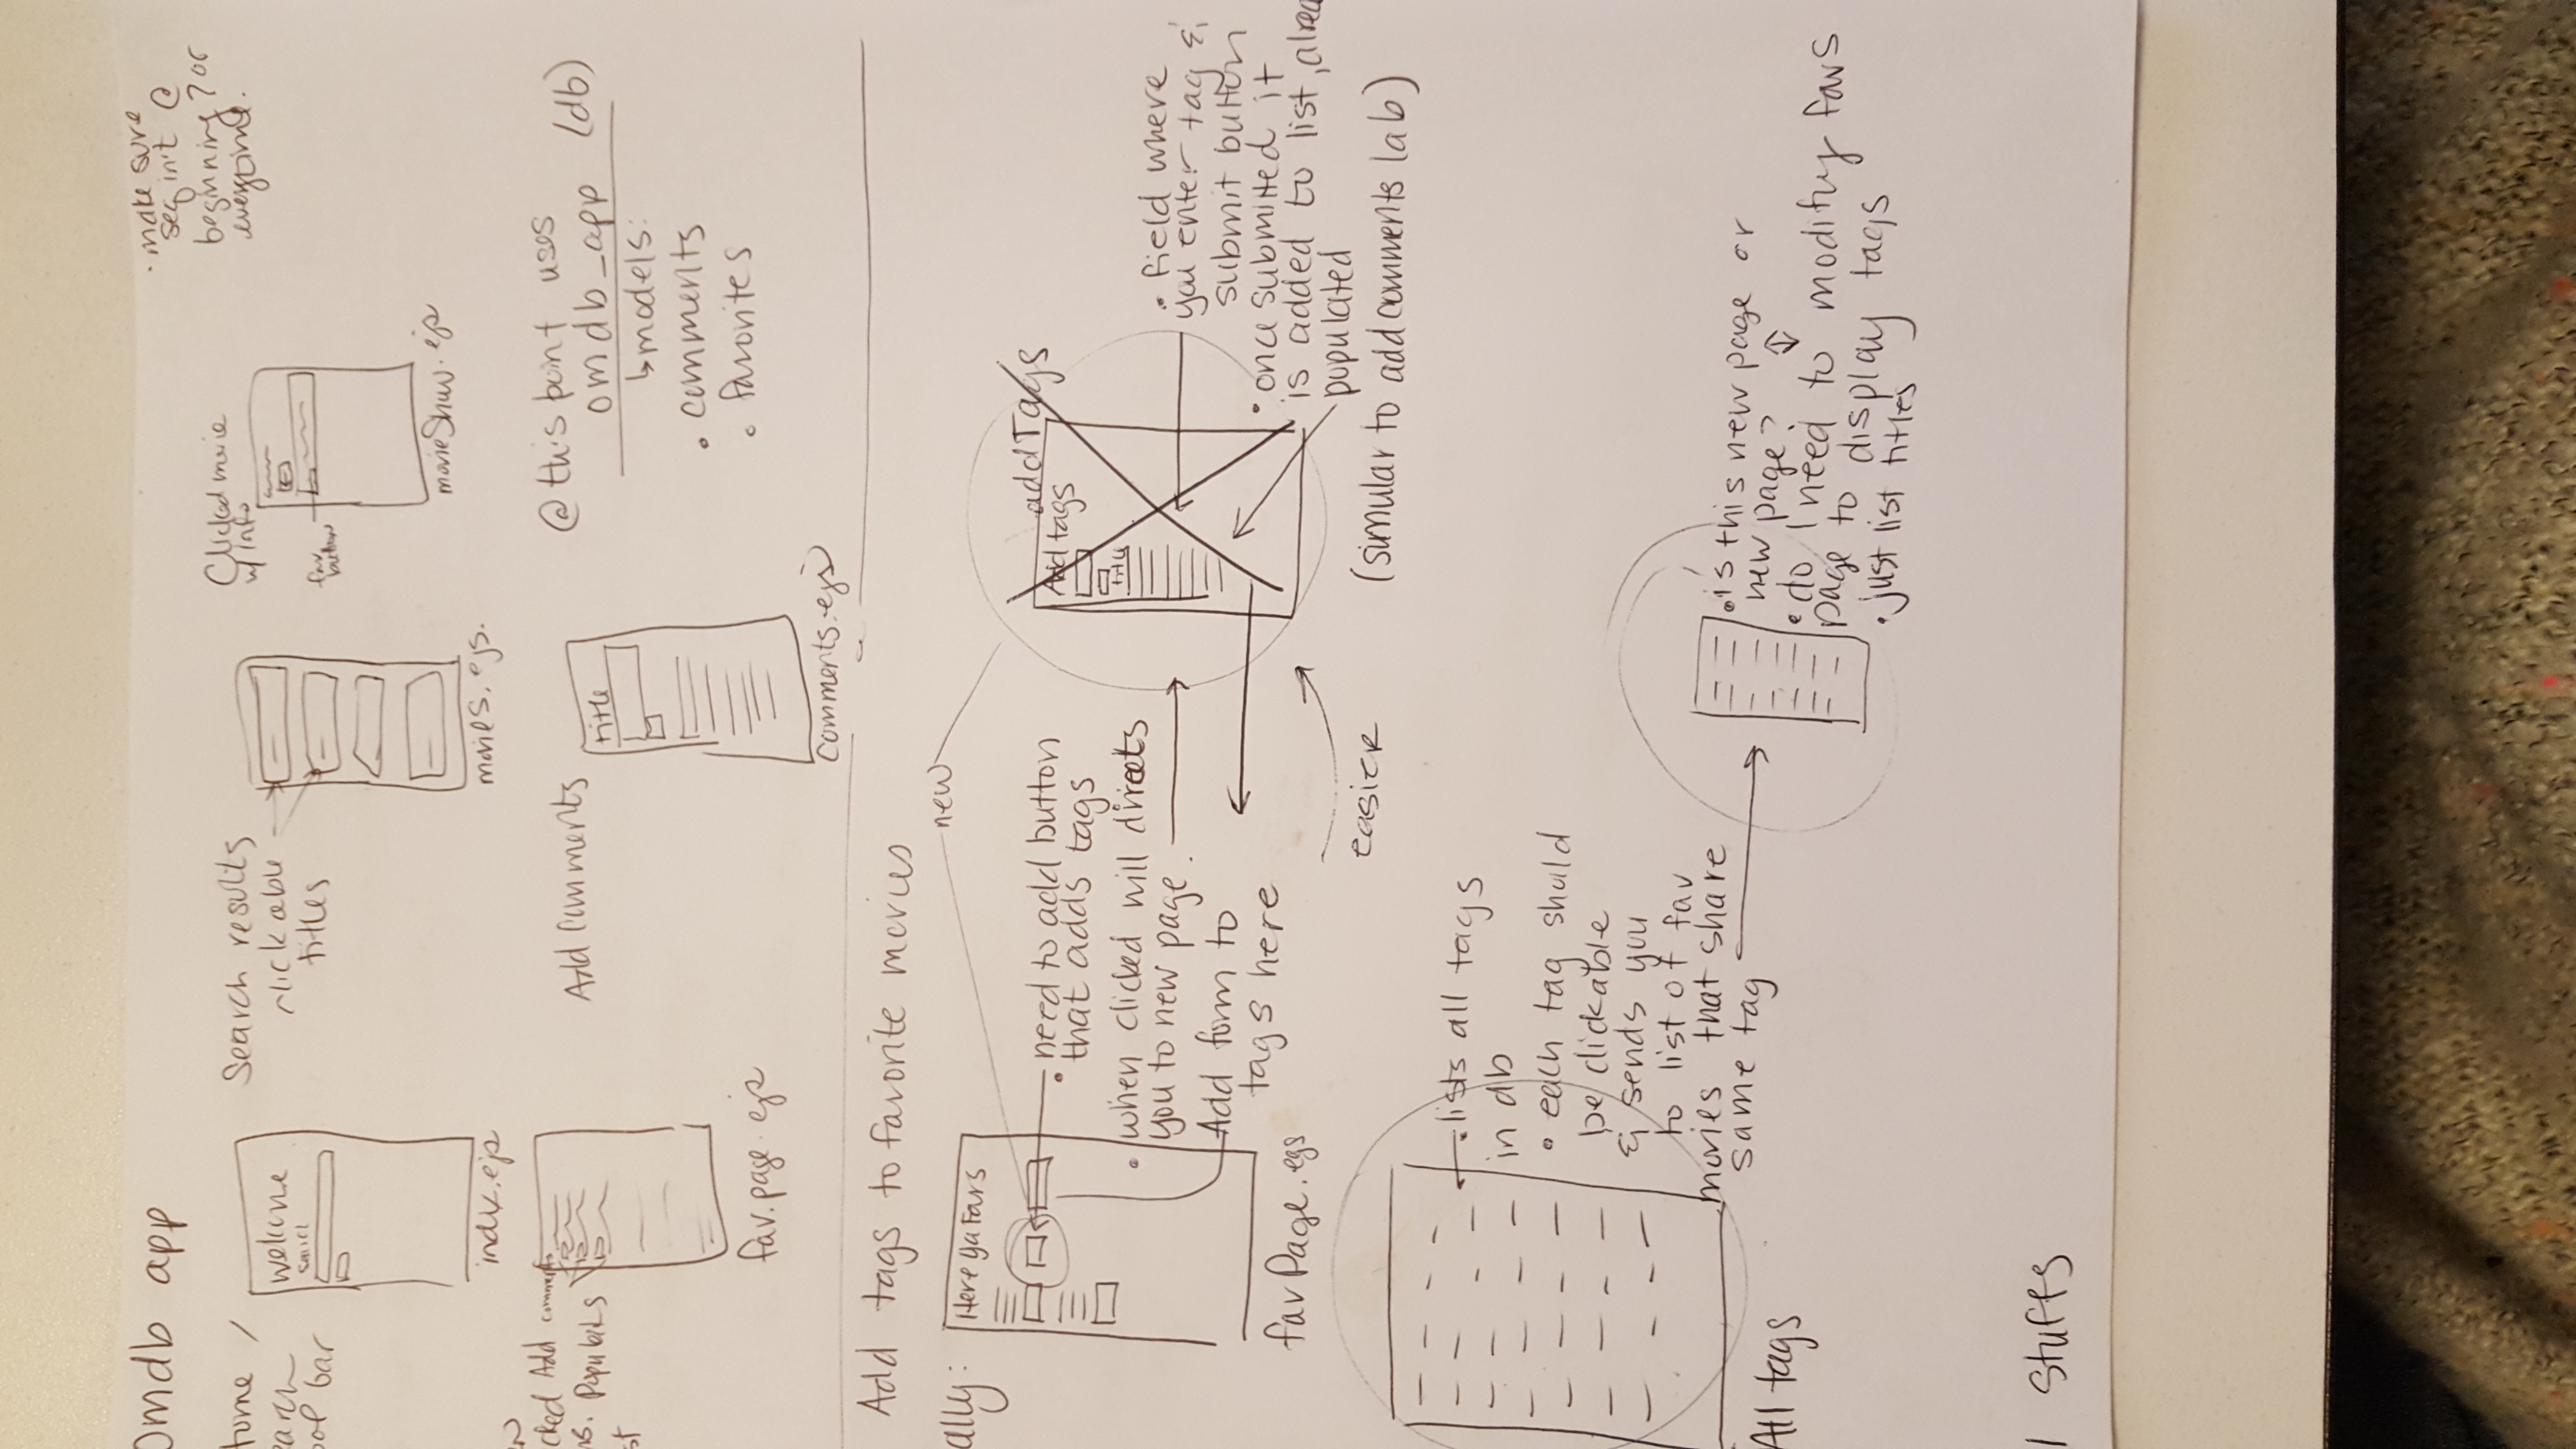 Omdb app
• make sure
seq in't @
beginning? or
everytime.
/
bar
welcome
index.ejs
Search results
clickable
titles
movies.ejs.
Clicked movie
w/ info
fav
button
movieShow.ejs
Add comments
Populates
fav.page.ejs
Add Comments
title
comments.ejs
@ this point uses
omdb_app (db)
↳ models:
• comments
• favorites
Add tags to favorite movies
ally:
Here ya Favs
new
• need to add button
that adds tags
• when clicked will directs
you to new page.
Add form to
tags here
favPage.egs
addTags
Add tags
title
• field where
you enter tag &
submit button
• once submitted it
is added to list, alrea
populated
(simular to add comments lab)
easier
• lists all tags
in db
• each tag should
be clickable
& sends you
to list of fav
movies that share
same tag
All tags
• is this new page or
new page?
• do I need to modify favs
page to display tags
• just list titles
stuffs